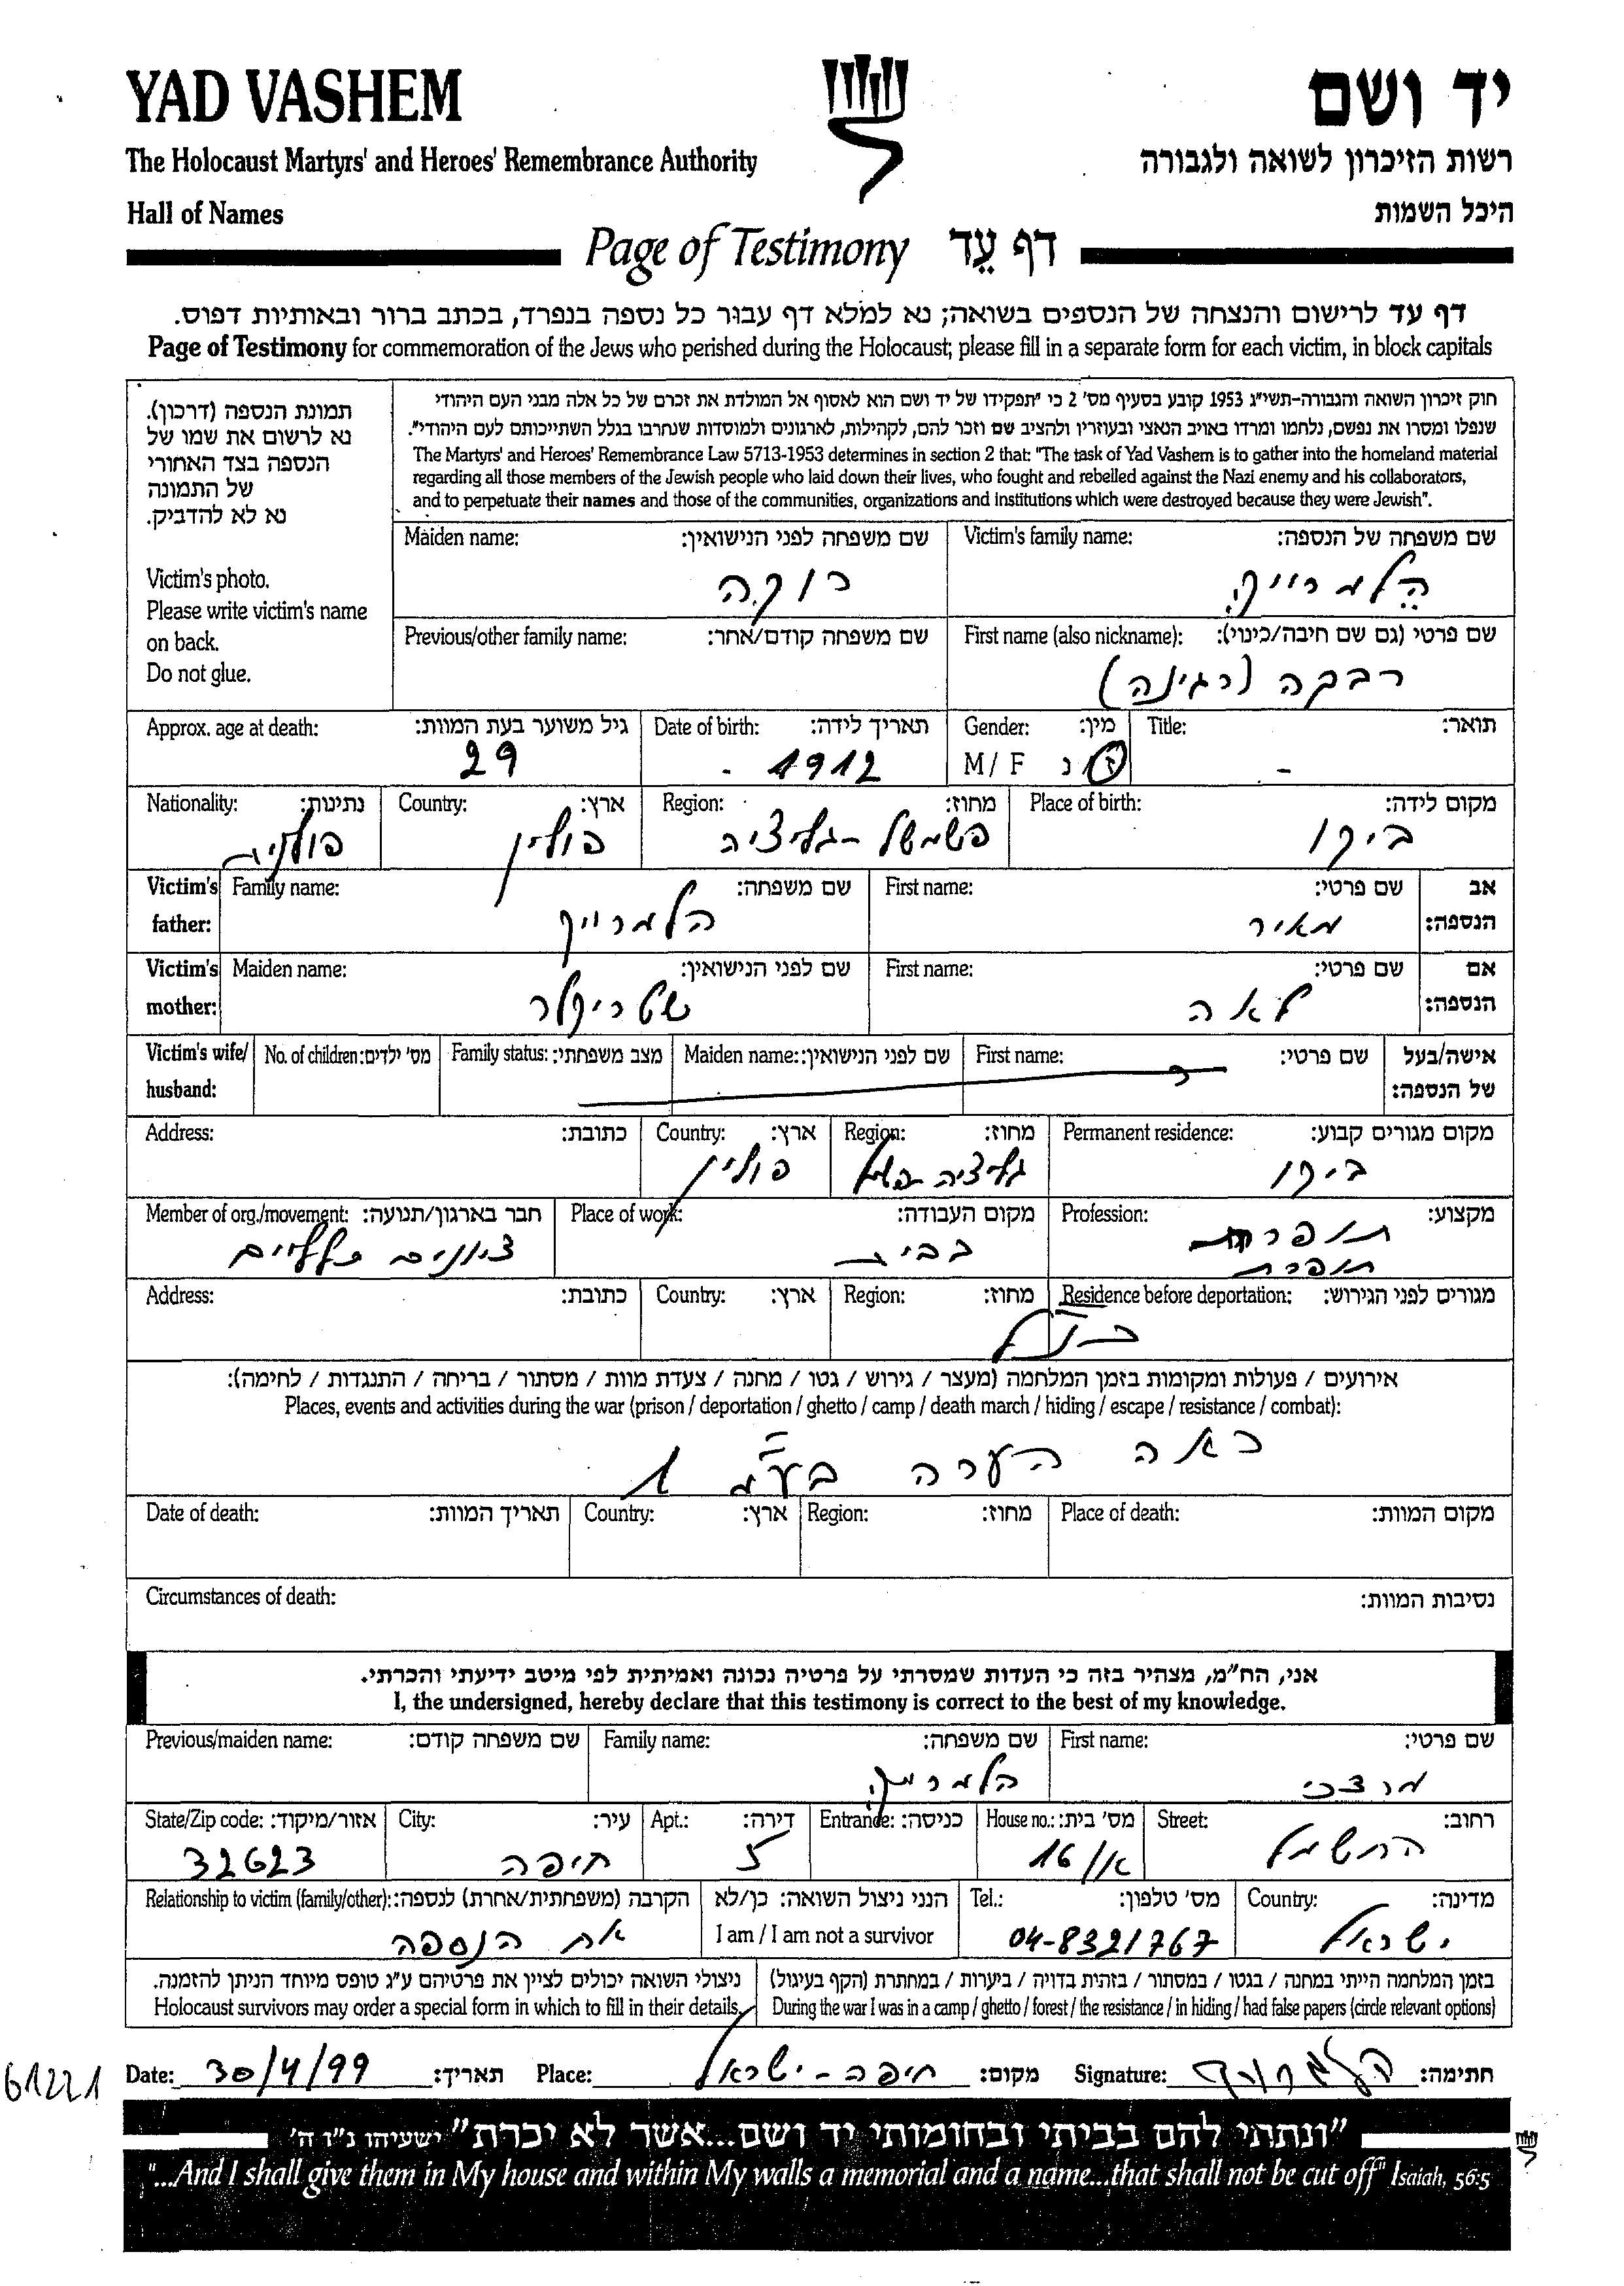 YAD VASHEM
יד ושם
The Holocaust Martyrs' and Heroes' Remembrance Authority
רשות הזיכרון לשואה ולגבורה
Hall of Names
היכל השמות
Page of Testimony דף עֵד
דף עד לרישום והנצחה של הנספים בשואה; נא למלא דף עבור כל נספה בנפרד, בכתב ברור ובאותיות דפוס.
Page of Testimony for commemoration of the Jews who perished during the Holocaust; please fill in a separate form for each victim, in block capitals
תמונת הנספה (דרכון).
נא לרשום את שמו של
הנספה בצד האחורי
של התמונה
נא לא להדביק.
Victim's photo.
Please write victim's name
on back.
Do not glue.
חוק זיכרון השואה והגבורה-תשי"ג 1953 קובע בסעיף מס' 2 כי "תפקידו של יד ושם הוא לאסוף אל המולדת את זכרם של כל אלה מבני העם היהודי
שנפלו ומסרו את נפשם, נלחמו ומרדו באויב הנאצי ובעוזריו ולהציב שם וזכר להם, לקהילות, לארגונים ולמוסדות שנחרבו בגלל השתייכותם לעם היהודי".
The Martyrs' and Heroes' Remembrance Law 5713-1953 determines in section 2 that: "The task of Yad Vashem is to gather into the homeland material
regarding all those members of the Jewish people who laid down their lives, who fought and rebelled against the Nazi enemy and his collaborators,
and to perpetuate their names and those of the communities, organizations and institutions which were destroyed because they were Jewish".
שם משפחה של הנספה: Victim's family name:
הלמרייך
שם משפחה לפני הנישואין: Maiden name:
רוקה
שם פרטי (גם שם חיבה/כינוי): First name (also nickname):
רבקה (רגינה)
שם משפחה קודם/אחר: Previous/other family name:
תואר: Title:
-
מין: Gender:
ז נ M / F
תאריך לידה: Date of birth:
1912 -
גיל משוער בעת המוות: Approx. age at death:
29
מקום לידה: Place of birth:
בירו
מחוז: Region:
פשמשל - גליציה
ארץ: Country:
פולין
נתינות: Nationality:
פולנית
אב הנספה: Victim's father:
שם פרטי: First name:
מאיר
שם משפחה: Family name:
הלמרייך
אם הנספה: Victim's mother:
שם פרטי: First name:
לאה
שם לפני הנישואין: Maiden name:
שטריקלר
אישה/בעל של הנספה: Victim's wife/ husband:
שם פרטי: First name:
שם לפני הנישואין: Maiden name:
מצב משפחתי: Family status:
מס' ילדים: No. of children:
מקום מגורים קבוע: Permanent residence:
בירו
מחוז: Region:
גליציה
ארץ: Country:
פולין
כתובת: Address:
מקצוע: Profession:
תופרת
תופרת
מקום העבודה: Place of work:
בבית
חבר בארגון/תנועה: Member of org./movement:
ציונים כלליים
מגורים לפני הגירוש: Residence before deportation:
כנ"ל
מחוז: Region:
ארץ: Country:
כתובת: Address:
אירועים / פעולות ומקומות בזמן המלחמה (מעצר / גירוש / גטו / מחנה / צעדת מוות / מסתור / בריחה / התנגדות / לחימה):
Places, events and activities during the war (prison / deportation / ghetto / camp / death march / hiding / escape / resistance / combat):
ראה הערה בע"מ 1
מקום המוות: Place of death:
מחוז: Region:
ארץ: Country:
תאריך המוות: Date of death:
נסיבות המוות: Circumstances of death:
אני, הח"מ, מצהיר בזה כי העדות שמסרתי על פרטיה נכונה ואמיתית לפי מיטב ידיעתי והכרתי.
I, the undersigned, hereby declare that this testimony is correct to the best of my knowledge.
שם פרטי: First name:
מרדכי
שם משפחה: Family name:
הלמרייך
שם משפחה קודם: Previous/maiden name:
רחוב: Street:
החשמל
מס' בית: House no.:
16/א
כניסה: Entrance:
דירה: Apt.:
5
עיר: City:
חיפה
אזור/מיקוד: State/Zip code:
32623
מדינה: Country:
ישראל
מס' טלפון: Tel.:
04-8321767
הנני ניצול השואה: כן/לא
I am / I am not a survivor
הקרבה (משפחתית/אחרת) לנספה: Relationship to victim (family/other):
אח הנספה
בזמן המלחמה הייתי במחנה / בגטו / במסתור / בזהות בדויה / ביערות / במחתרת (הקף בעיגול)
During the war I was in a camp / ghetto / forest / the resistance / in hiding / had false papers (circle relevant options)
ניצולי השואה יכולים לציין את פרטיהם ע"ג טופס מיוחד הניתן להזמנה.
Holocaust survivors may order a special form in which to fill in their details.
חתימה: הלמרייך Signature:
מקום: חיפה - ישראל Place:
תאריך: 30/4/99 Date:
61221
"ונתתי להם בביתי ובחומותי יד ושם...אשר לא יכרת" ישעיהו נ"ו ה'
"...And I shall give them in My house and within My walls a memorial and a name...that shall not be cut off" Isaiah, 56:5